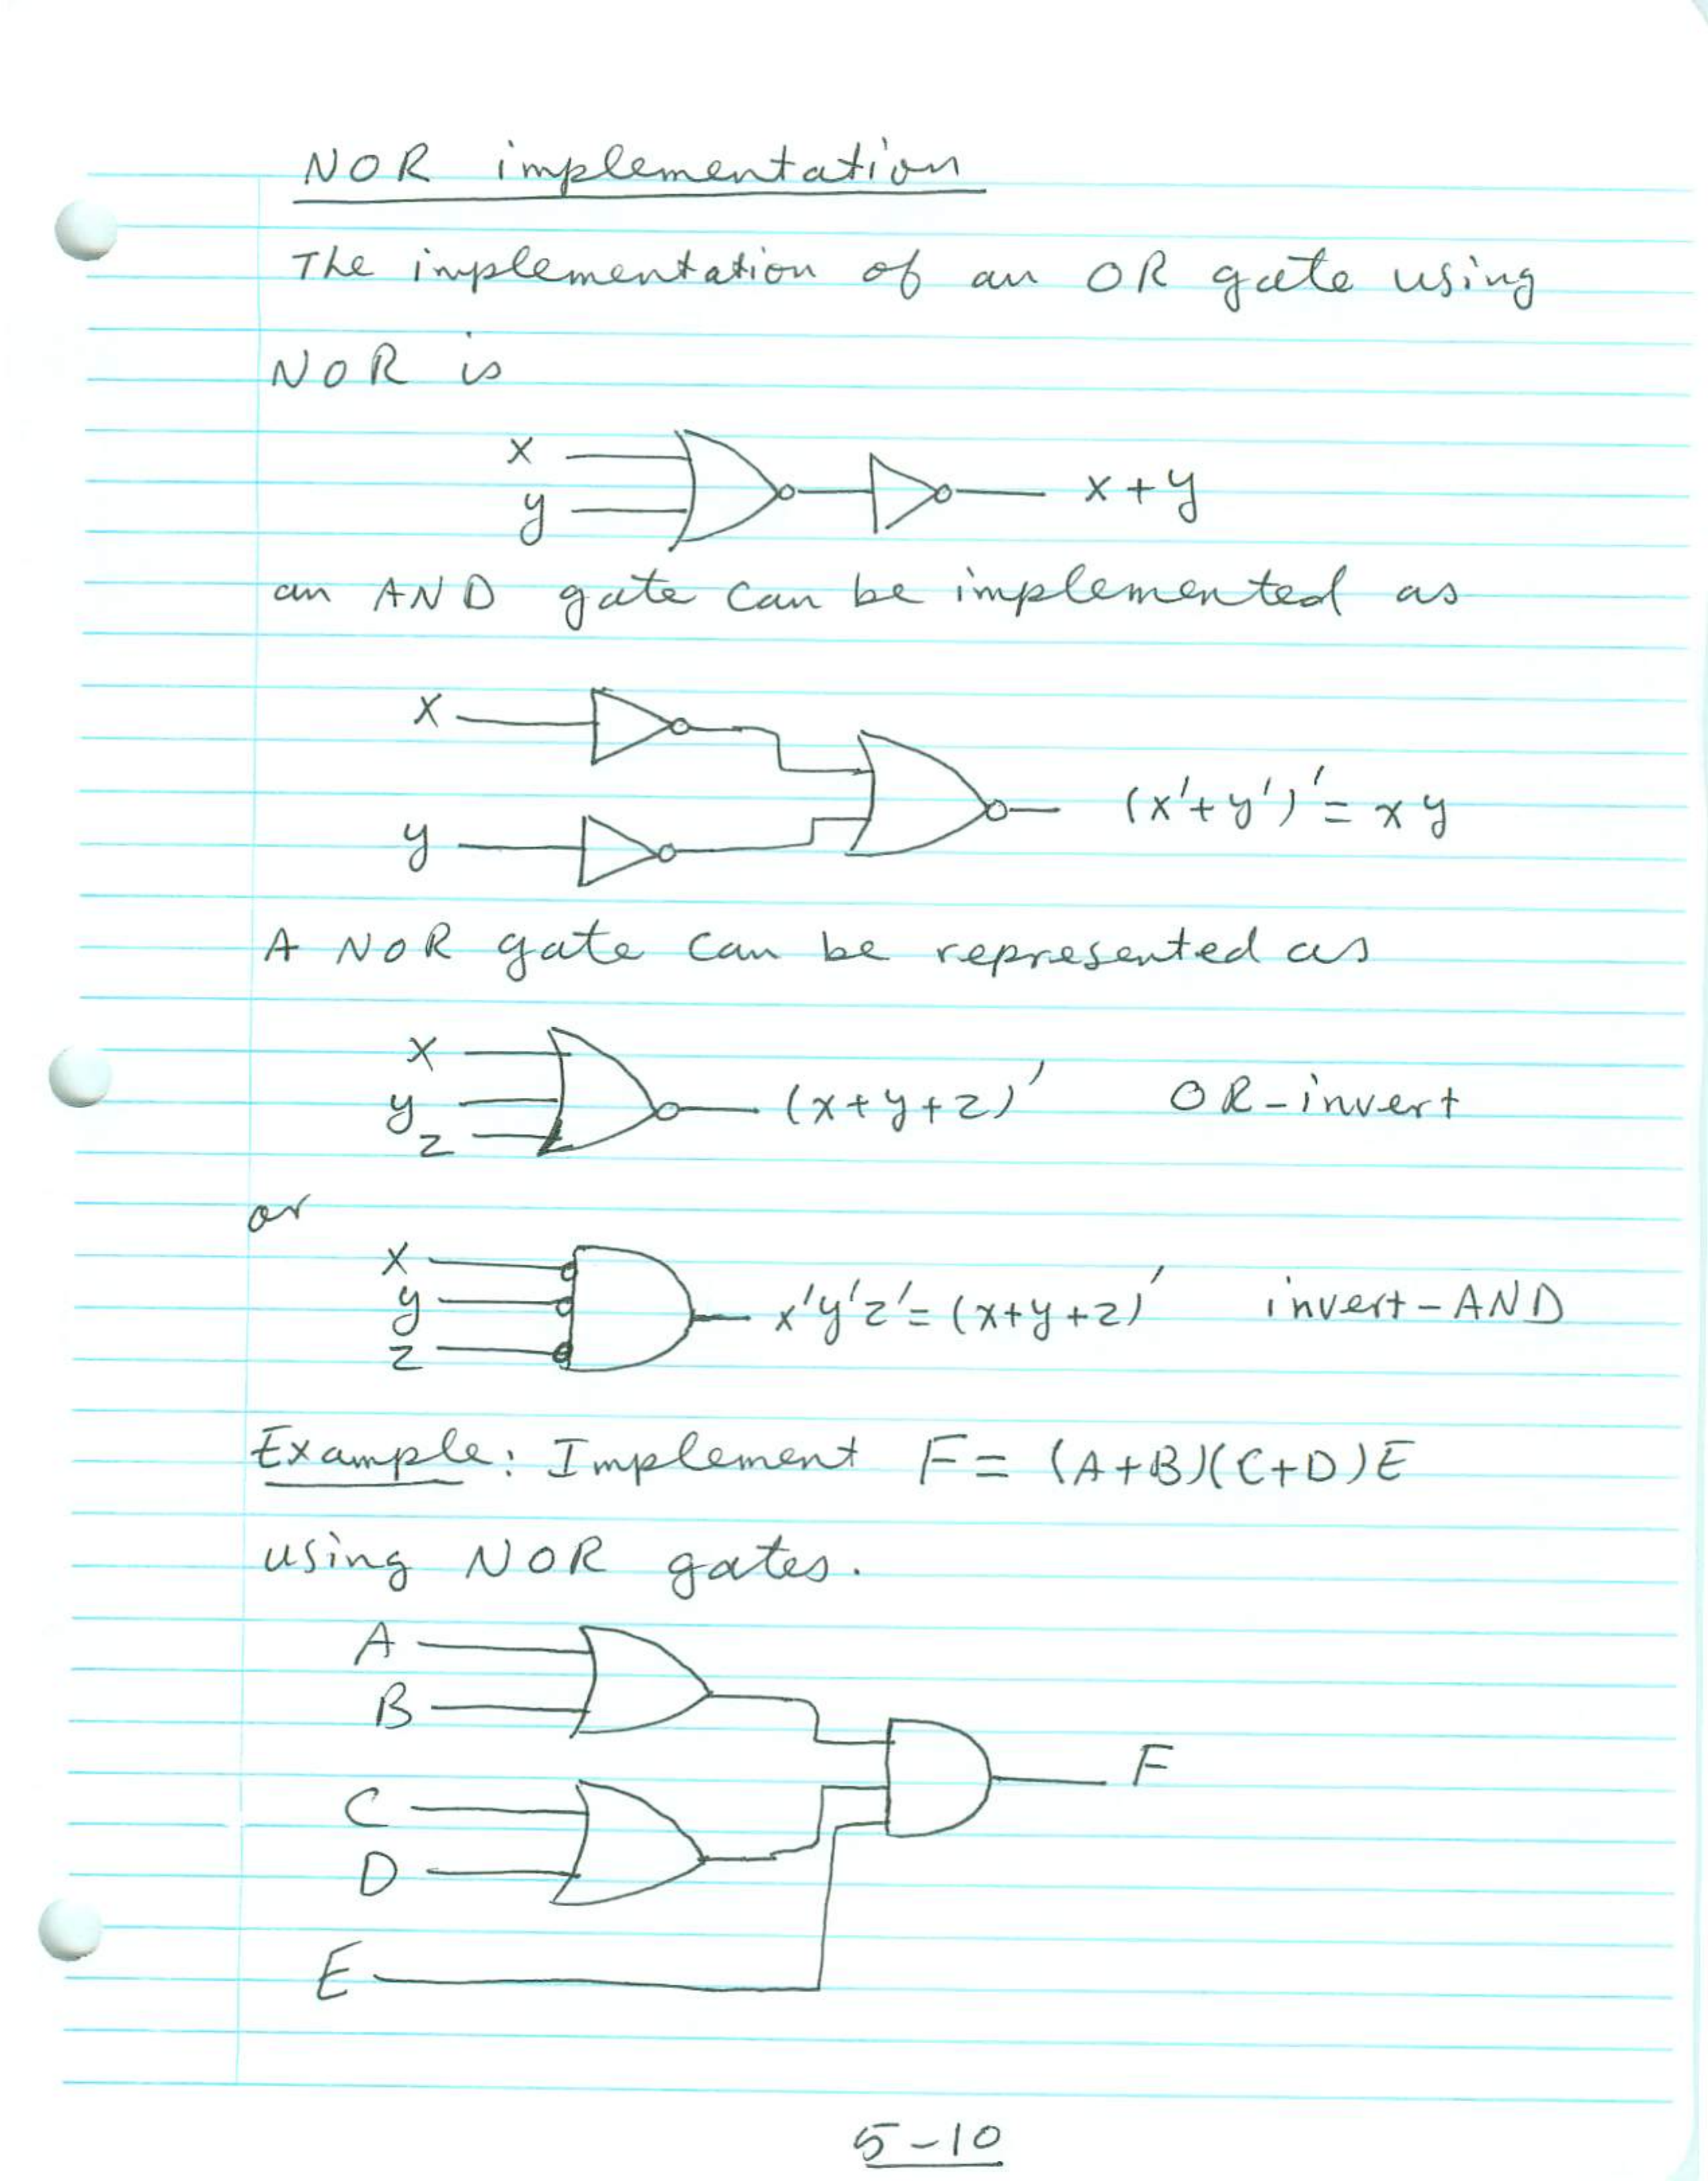 NOR implementation
The implementation of an OR gate using
NOR is
x
y
x + y
an AND gate can be implemented as
x
y
(x'+y')'= xy
A NOR gate can be represented as
x
y
z
(x+y+z)' OR-invert
or
x
y
z
x'y'z'= (x+y+z)' invert-AND
Example: Implement F= (A+B)(C+D)E
using NOR gates.
A
B
C
D
E
F
5-10